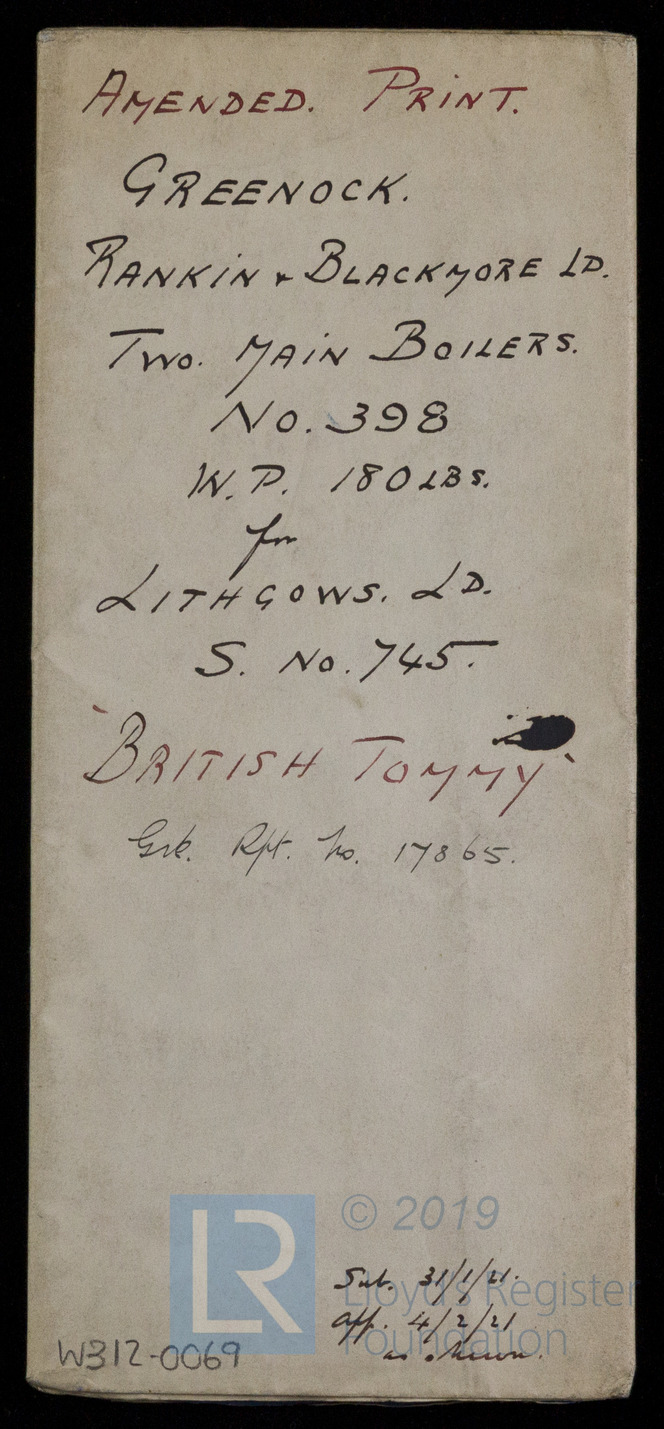 AMENDED. PRINT.
GREENOCK.
RANKIN & BLACKMORE LD.
TWO. MAIN BOILERS.
NO. 398
W.P. 180 LBS.
for
LITHGOWS. LD.
S. NO. 745.
"BRITISH TOMMY"
Grk. Rpt. No. 17865.
LR
© 2019
Sub. 31/1/21.
Lloyd's Register
App. 4/2/21
Foundation
as shewn.
W312-0069